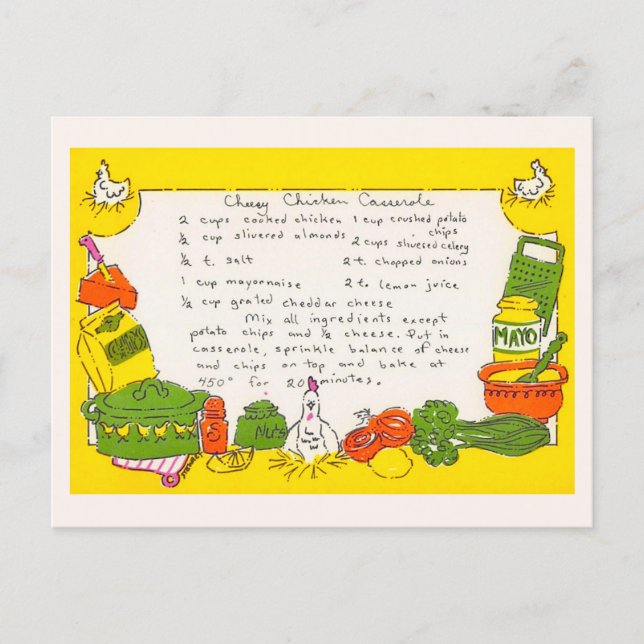 Cheesy Chicken Casserole
2 cups cooked chicken 1 cup crushed potato chips
½ cup slivered almonds 2 cups slivered celery
½ t. salt 2 t. chopped onions
1 cup mayornaise 2 t. lemon juice
½ cup grated cheddar cheese
Mix all ingredients except
potato chips and ½ cheese. Put in
casserole, sprinkle balance of cheese
and chips on top and bake at
450° for 20 minutes.
MAYO
CHIPS
S
Nuts
© STEWART